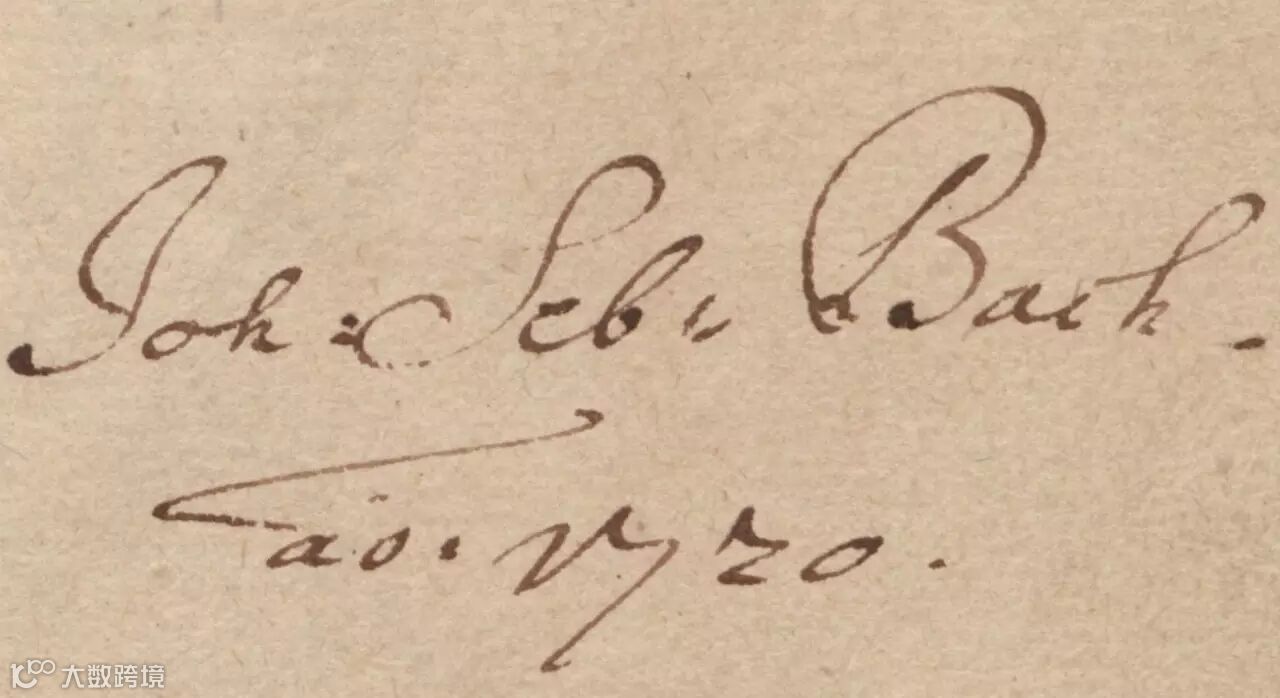 Joh: Seb: Bach.
ao. 1720.
大数跨境